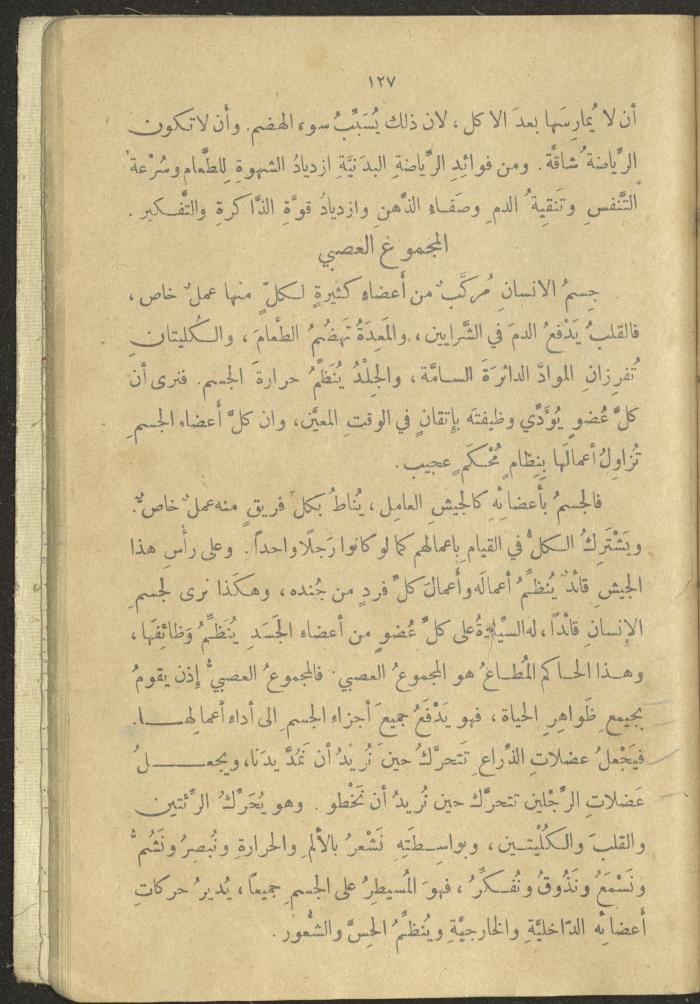 ١٢٧
أن لا يُمارِسَها بعدَ الاكل ، لان ذلك يُسَبِّبُ سوء الهضم. وأن لا تكون
الرِّياضةُ شاقَّة . ومن فوائدِ الرِّياضةِ البدَنيَّةِ ازديادُ الشهوةِ لِلطَّعام وسُرْعةُ
التَّنفسِ وتَنقِيةُ الدم وصَفاء الذِّهنِ وازديادُ قوَّةِ الذَّاكرةِ والتَّفكير .
المجموعُ العصبي
جِسمُ الانسانِ مُركَّبٌ من أَعضاءٍ كثيرةٍ لكلٍّ منها عملٌ خاص ،
فالقلبُ يَدْفعُ الدمَ في الشَّرايين ، والمَعِدَةُ تَهضُمُ الطَّعامَ ، والكُليتانِ
تُفرِزانِ الموادَّ الدائرَةَ السامَّة ، والجِلْدُ يُنَظِّمُ حرارةَ الجسم. فنرى أن
كلَّ عُضوٍ يُؤَدِّي وظيفتَه بإتقانٍ في الوقتِ المعيَّن، وان كلَّ أَعضاء الجسمِ
تُزاوِلُ أعمالَها بِنِظامٍ مُحْكَمٍ عجيب .
فالجسمُ بأَعضائِهِ كالجيشِ العامِل ، يُناطُ بكلِّ فريقٍ منه عملٌ خاصٌّ.
ويَشْتَرِكُ الكلُّ في القيام بِاعمالهم كما لو كانوا رَجلًا واحداً. وعلى رأْسِ هذا
الجيشِ قائدٌ يُنظِّمُ أعمالَه وأَعمالَ كلِّ فردٍ من جُنده ، وهكَذا نرى لجسمِ
الإنسانِ قائداً ، له السِّيادةُ على كلِّ عُضوٍ من أعضاء الجَسَدِ يُنَظِّمُ وَظائِفَها ،
وهذا الحاكم المُطاعُ هو المجموعُ العصبي. فالمجموعُ العصبيُّ إذن يقومُ
بجميعِ ظَواهِرِ الحياة ، فهو يَدْفَعُ جميعَ أجزاءِ الجسم إلى أداءِ أعمالها.
فيَجْعلُ عضلاتِ الذِّراعِ تتحرَّكُ حينَ نُريدُ أن نَمُدَّ يدَنا ، ويجعلُ
عَضلاتِ الرِّجْلين تتحرَّك حين نُريدُ أن نَخْطو . وهو يُحَرِّكُ الرِّئتين
والقلبَ والكُلْيتين ، وبواسِطَتِهِ نَشْعرُ بالألمِ والحرارةِ ونُبصرُ ونَشُمُّ
ونَسْمَعُ ونَذُوقُ ونُفكِّرُ ، فهوَ المُسيطِرُ على الجسمِ جميعاً ، يُديرُ حركاتِ
أَعضائه الدّاخليَّةِ والخارجيَّةِ ويُنظِّمُ الحِسَّ والشُّعور .